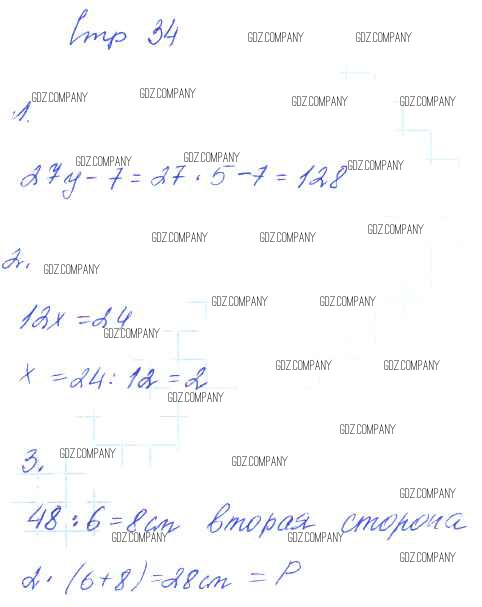 Стр 34
GDZ.COMPANY GDZ.COMPANY
GDZ.COMPANY GDZ.COMPANY GDZ.COMPANY GDZ.COMPANY
1.
GDZ.COMPANY GDZ.COMPANY GDZ.COMPANY
27y - 7 = 27 · 5 - 7 = 128
GDZ.COMPANY GDZ.COMPANY GDZ.COMPANY
2.
GDZ.COMPANY
GDZ.COMPANY GDZ.COMPANY
12x = 24
GDZ.COMPANY
GDZ.COMPANY GDZ.COMPANY
x = 24 : 12 = 2
GDZ.COMPANY
GDZ.COMPANY
3.
GDZ.COMPANY GDZ.COMPANY
GDZ.COMPANY
48 : 6 = 8 см вторая сторона
GDZ.COMPANY GDZ.COMPANY
GDZ.COMPANY
2 · (6 + 8) = 28 см = P